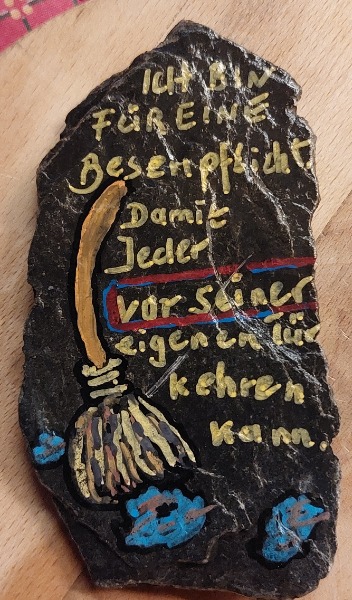 ICH BIN
FÜR EINE
Besenpflicht
Damit
Jeder
vor seiner
eigenen Tür
kehren
kann.